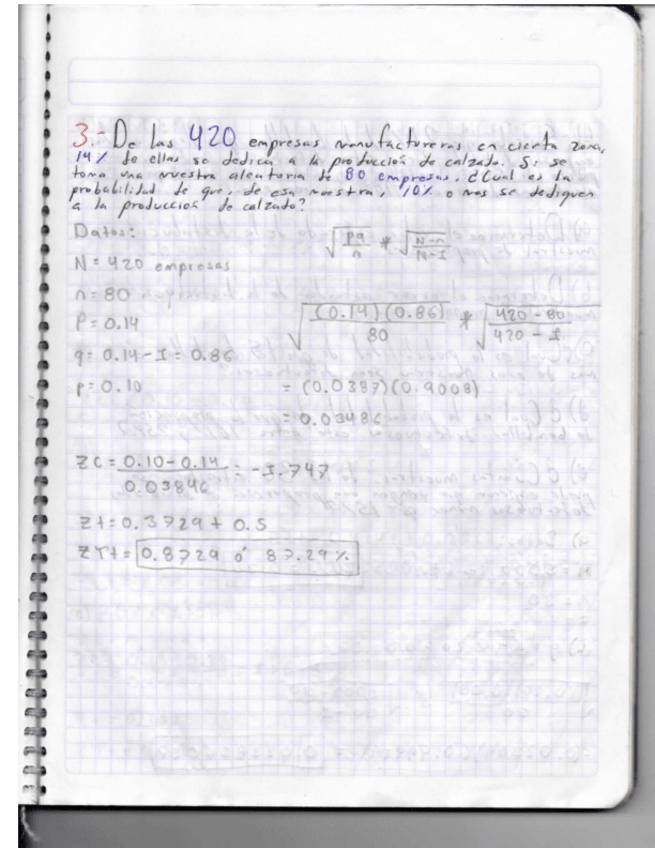 3.- De las 420 empresas manufactureras en cierta zona,
14% de ellas se dedica a la producción de calzado. Si se
toma una muestra aleatoria de 80 empresas. ¿Cual es la
probabilidad de que, de esa muestra, 10% o mas se dediquen
a la producción de calzado?
Datos:
√pq/n * √N-n/N-1
N = 420 empresas
n = 80
P = 0.14
q = 0.14 - 1 = 0.86
p = 0.10
√(0.14)(0.86)/80 * √420-80/420-1
= (0.0387)(0.9008)
= 0.03486
ZC = 0.10-0.14/0.03846 = -1.747
Zt = 0.3729 + 0.5
= 0.8729 ó 87.29%